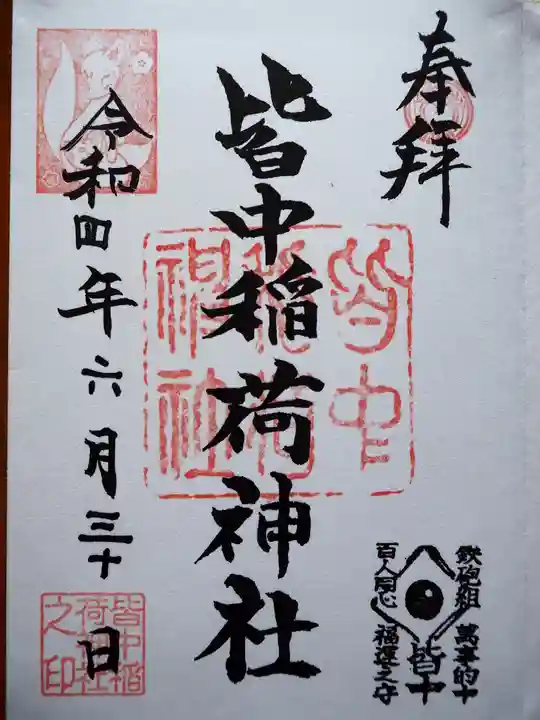 奉拝
皆中稲荷神社
皆中
稲荷
神社
令和四年六月三十日
皆中稲
荷神社
之印
鉄砲組
百人同心
萬事的中
福運之守
皆中